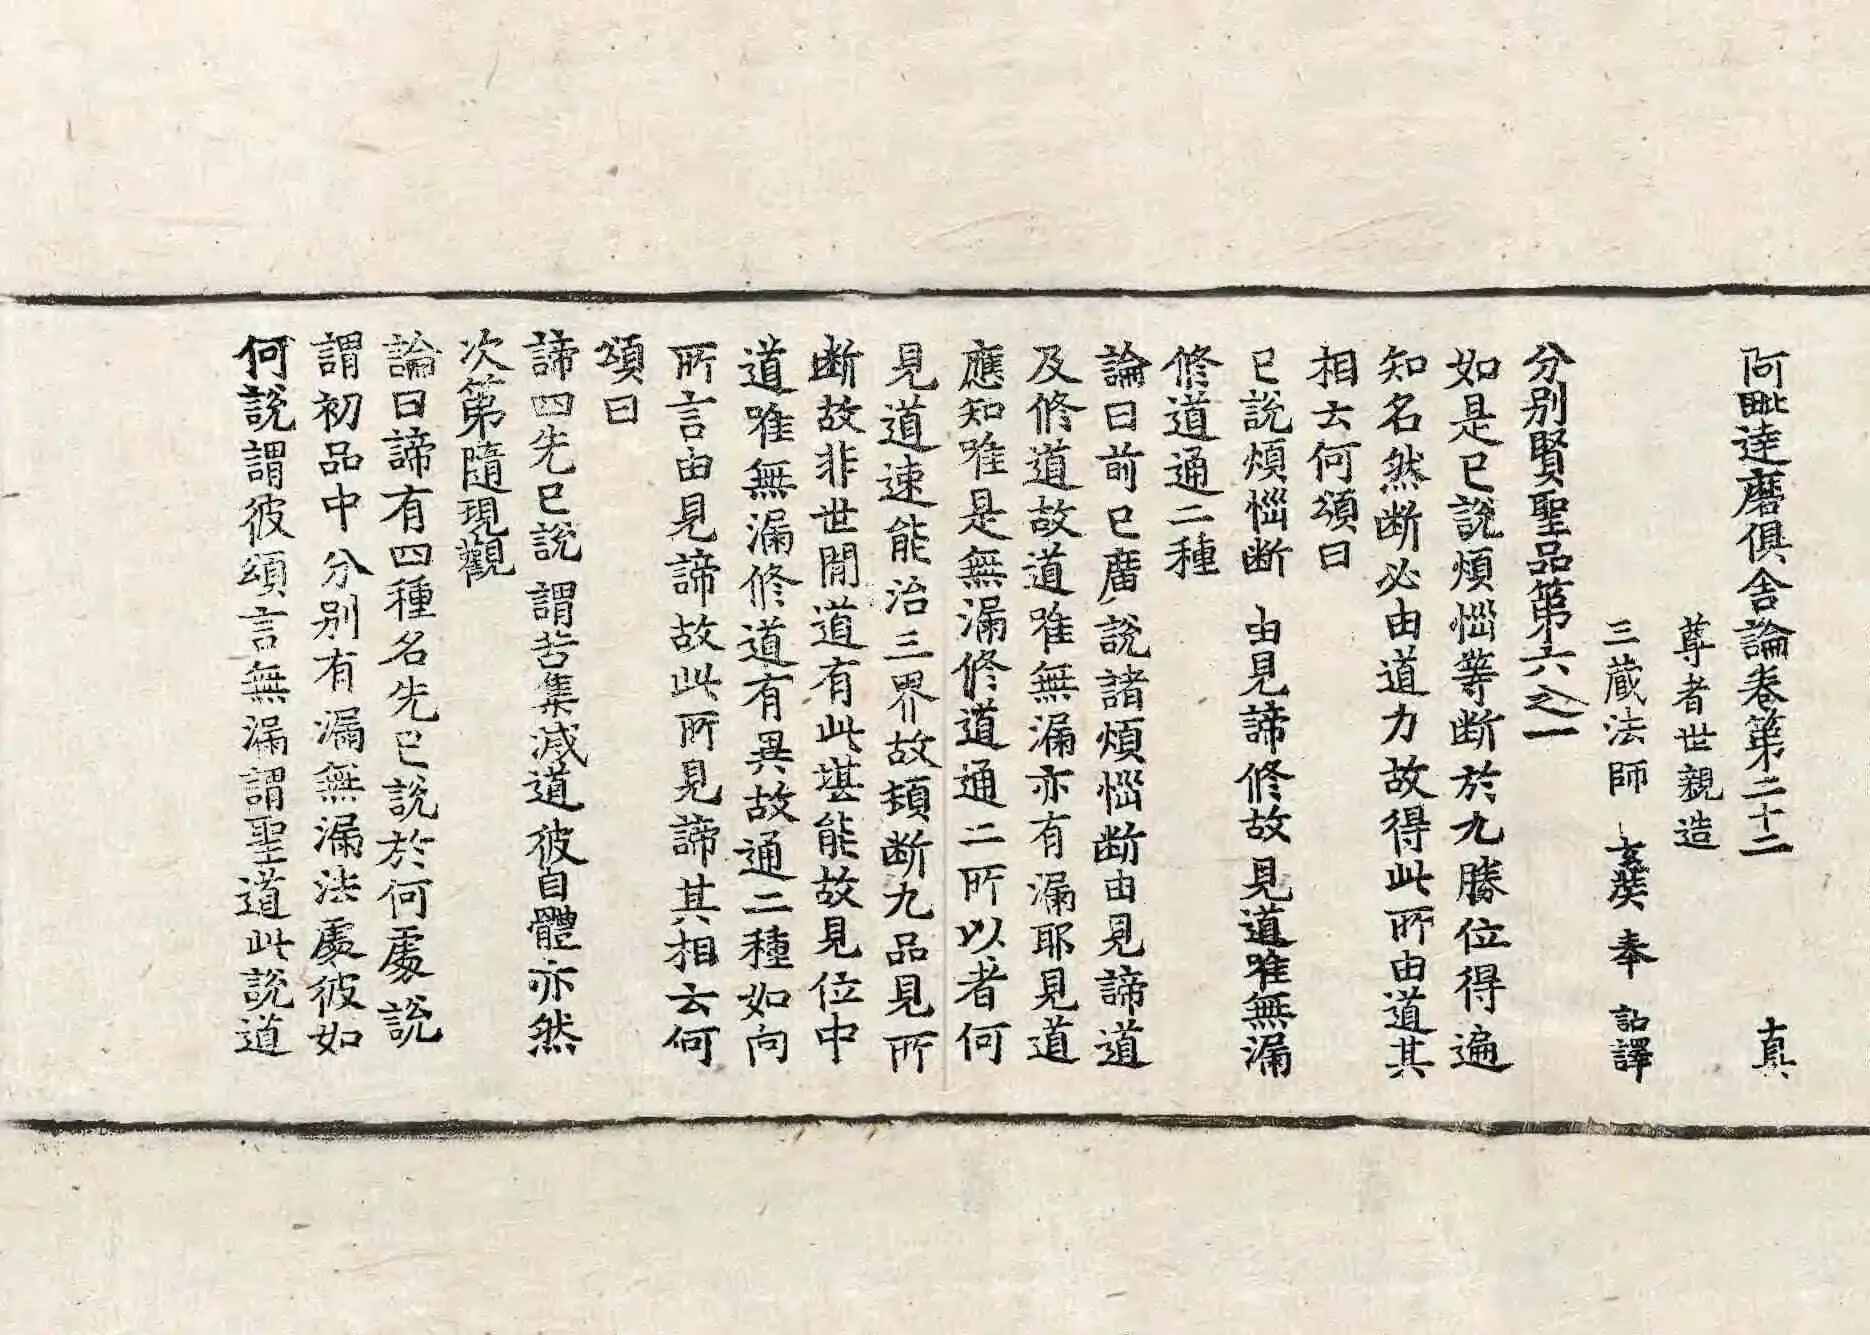 阿毗達磨俱舍論卷第二十二 真
尊者世親造
三藏法師 玄奘 奉 詔譯
分別賢聖品第六之一
如是已說煩惱等斷於九勝位得遍
知名然斷必由道力故得此所由道其
相云何頌曰
已說煩惱斷 由見諦修故 見道唯無漏
修道通二種
論曰前已廣說諸煩惱斷由見諦道
及修道故道唯無漏亦有漏耶見道
應知唯是無漏修道通二所以者何
見道速能治三界故頓斷九品見所
斷故非世間道有此堪能故見位中
道唯無漏修道有異故通二種如向
所言由見諦故此所見諦其相云何
頌曰
諦四先已說 謂苦集滅道彼自體亦然
次第隨現觀
論曰諦有四種名先已說於何處說
謂初品中分別有漏無漏法處彼如
何說謂彼頌言無漏謂聖道此說道